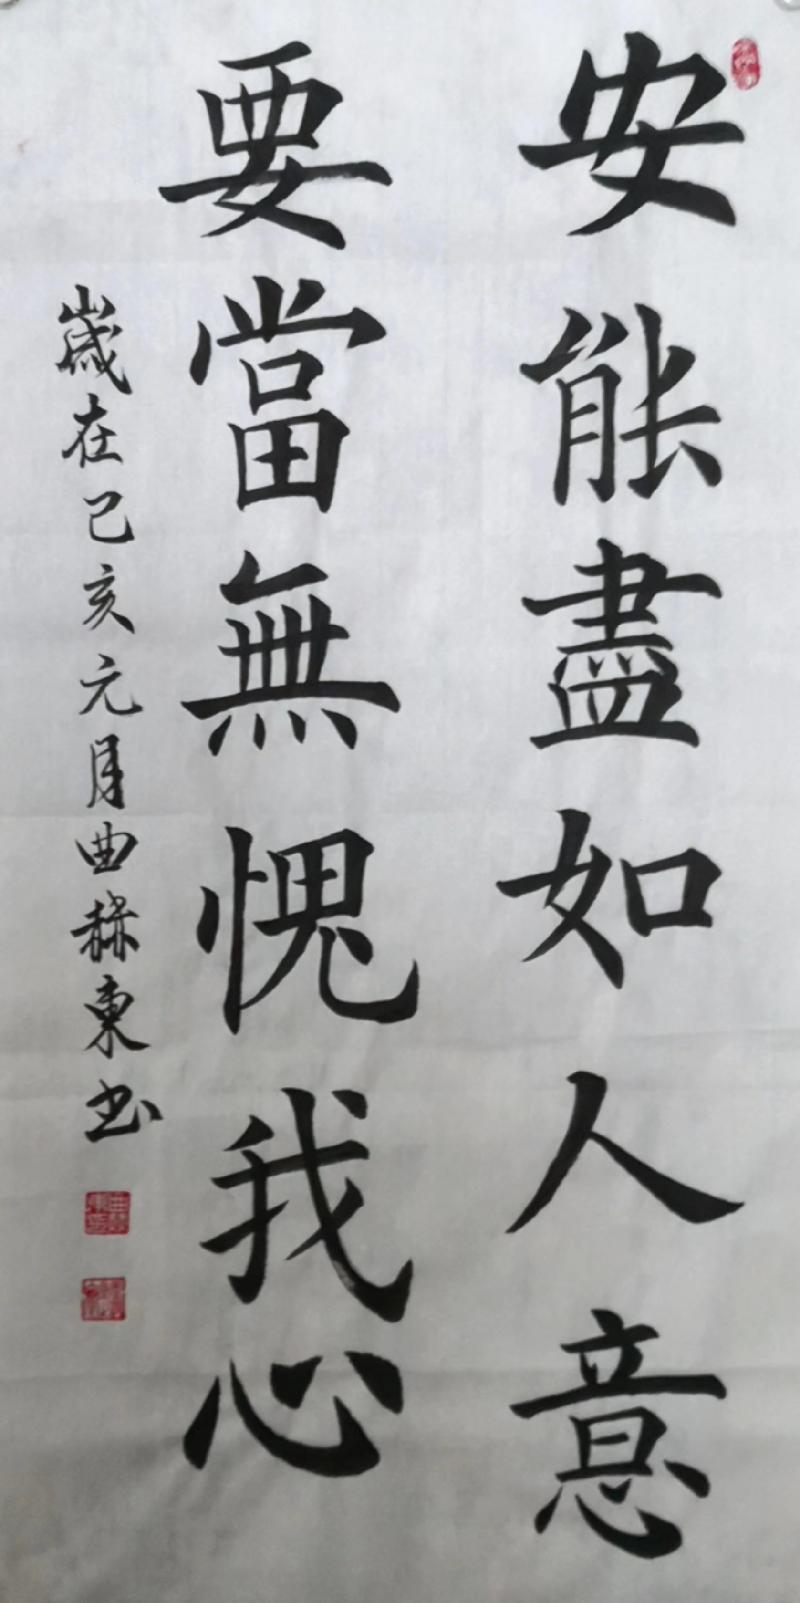 安能盡如人意
要當無愧我心
歲在己亥元月曲赫東书